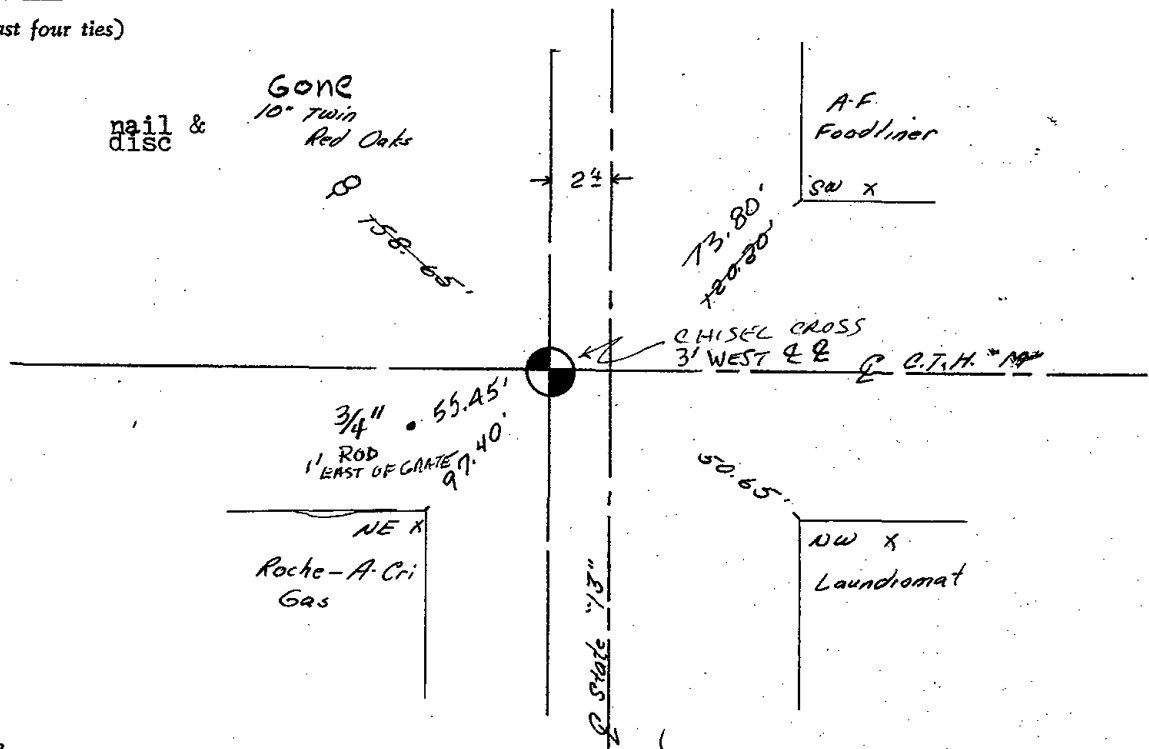 ast four ties)
Gone
10" Twin
Red Oaks
nail &
disc
A-F
Foodliner
SW X
2 4
158.65'
73.80'
120.20'
CHISEL CROSS
3' WEST ℄ ℄
℄ C.T.H. "M"
3/4" • 55.45'
ROD
1' EAST OF GRATE
97.40'
50.65'
NE X
Roche-A-Cri
Gas
NW X
Laundromat
℄ State "13"